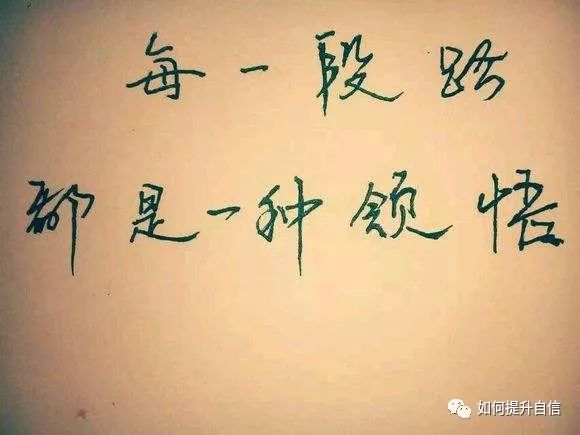 每一段路
都是一种领悟
如何提升自信